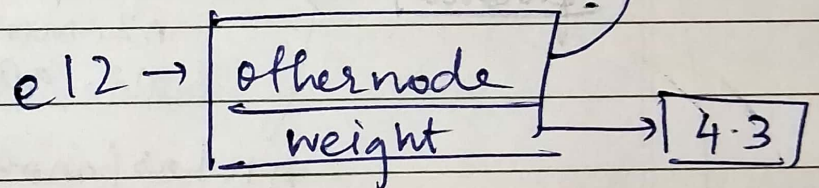 e12 → othernode
weight → 4.3